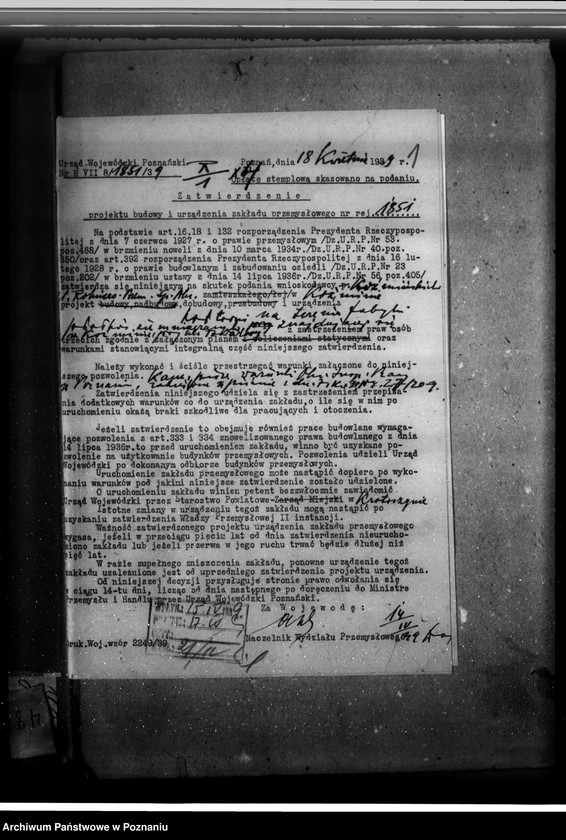 Urząd Wojewódzki Poznański
Poznań, dnia 18 Kwietnia 1939 r.
Nr B VII 8/1851/39
Opłatę stemplową skasowano na podaniu.
Zatwierdzenie
projektu budowy i urządzenia zakładu przemysłowego nr rej. 1851
Na podstawie art.16.18 i 132 rozporządzenia Prezydenta Rzeczypospo-
litej z dnia 7 czerwca 1927 r. o prawie przemysłowym /Dz.U.R.P.Nr 53.
poz.468/ w brzmieniu noweli z dnia 10 marca 1934r./Dz.U.R.P.Nr 40.poz.
350/oraz art.392 rozporządzenia Prezydenta Rzeczypospolitej z dnia 16 lu-
tego 1928 r. o prawie budowlanym i zabudowaniu osiedli /Dz.U.R.P.Nr 23
poz.202/ w brzmieniu ustawy z dnia 14 lipca 1936r./Dz.U.R.P.Nr 56 poz.405/
zatwierdza się niniejszym na skutek podania wnioskodawcy
zamieszkałego/łej/w Koźminie
projekt budowy,nadbudowy,dobudowy,przebudowy i urządzenia
na terenie
z zastrzeżeniem praw osób
trzecich zgodnie z załączonym planem i obliczeniami statycznymi oraz
warunkami stanowiącymi integralną część niniejszego zatwierdzenia.
Należy wykonać i ściśle przestrzegać warunki, załączone do niniej-
szego pozwolenia.
Zatwierdzenia niniejszego udziela się z zastrzeżeniem przepisa-
nia dodatkowych warunków co do urządzenia zakładu,o ile się w nim po
uruchomieniu okażą braki szkodliwe dla pracujących i otoczenia.
Jeżeli zatwierdzenie to obejmuje również prace budowlane wymaga-
jące pozwolenia z art.333 i 334 znowelizowanego prawa budowlanego z dnia
14 lipca 1936r.to przed uruchomieniem zakładu, winno być uzyskane po-
zwolenie na użytkowanie budynków przemysłowych. Pozwolenia udzieli Urząd
Wojewódzki po dokonanym odbiorze budynków przemysłowych.
Uruchomienie zakładu przemysłowego może nastąpić dopiero po wyko-
naniu warunków pod jakimi niniejsze zatwierdzenie zostało udzielone.
O uruchomieniu zakładu winien petent bezzwłocznie zawiadomić
Urząd Wojewódzki przez Starostwo Powiatowe-Zarząd Miejski w Krotoszynie
Istotne zmiany w urządzeniu tegoż zakładu mogą nastąpić po
uzyskaniu zatwierdzenia Władzy Przemysłowej II instancji.
Ważność zatwierdzonego projektu urządzenia zakładu przemysłowego
wygasa, jeżeli w przeciągu pięciu lat od dnia zatwierdzenia nierucho-
miono zakładu lub jeżeli przerwa w jego ruchu trwać będzie dłużej niż
pięć lat.
W razie zupełnego zniszczenia zakładu, ponowne urządzenie tegoż
zakładu uzależnione jest od uprzedniego zatwierdzenia projektu urządzenia.
Od niniejszej decyzji przysługuje stronie prawo odwołania się
w ciągu 14-tu dni, licząc od dnia następnego po doręczeniu do Ministra
Przemysłu i Handlu przez Urząd Wojewódzki Poznański.
Za Wojewodę:
Naczelnik Wydziału Przemysłowego
Druk.Woj.wzór 2249/39
Archiwum Państwowe w Poznaniu